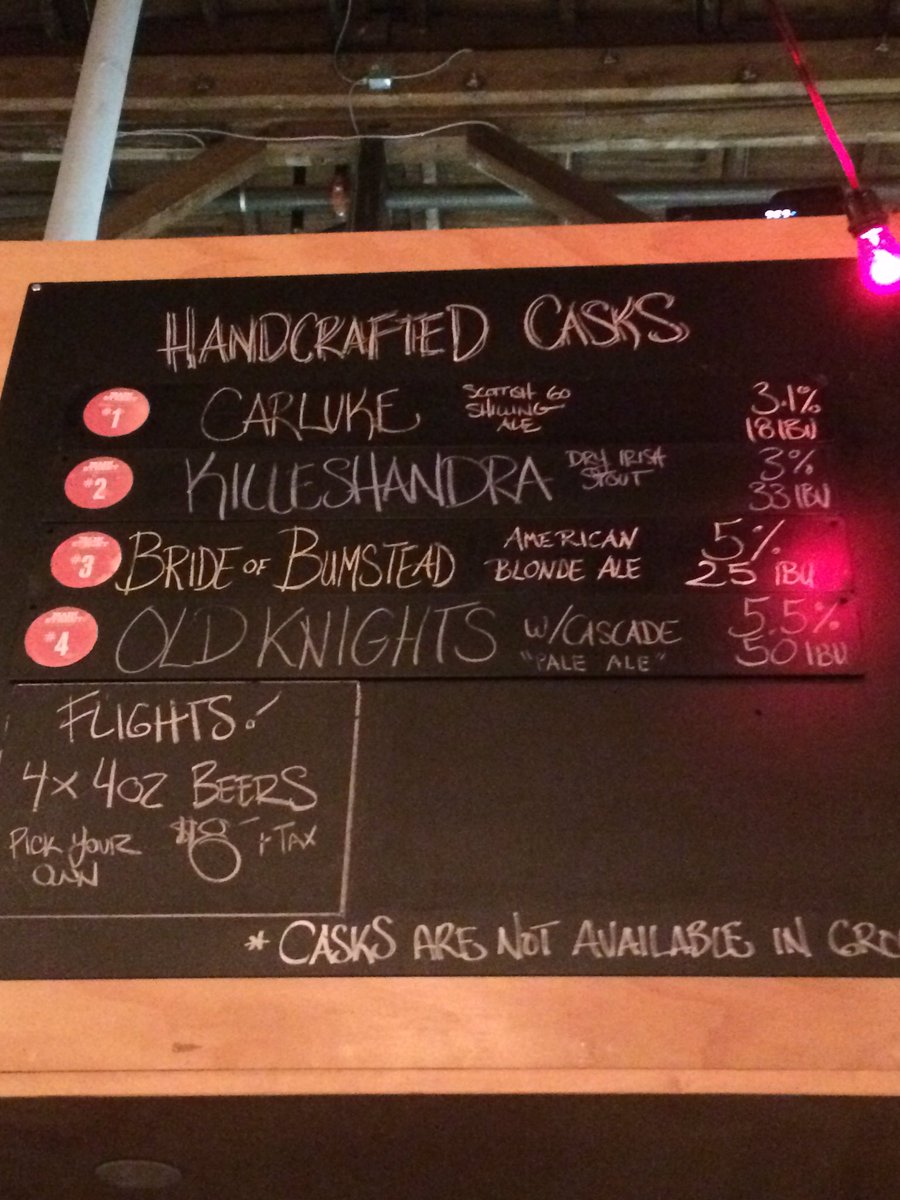 HANDCRAFTED CASKS
#1 CARLUKE SCOTTISH 60 SHILLING ALE 3.1% 18 IBU
#2 KILLESHANDRA DRY IRISH STOUT 3% 33 IBU
#3 BRIDE OF BUMSTEAD AMERICAN BLONDE ALE 5% 25 IBU
#4 OLD KNIGHTS W/CASCADE "PALE ALE" 5.5% 50 IBU
FLIGHTS!
4 x 4oz BEERS
PICK YOUR OWN $8 + TAX
* CASKS ARE NOT AVAILABLE IN GRO